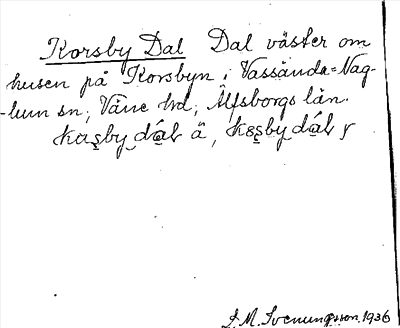 Korsby Dal Dal väster om
husen på Korsbyn i Vassända-Nag-
-lum sn; Väne hd; Älfsborgs län.
kas̨by dál ä,
J. M. Svenungsson. 1936